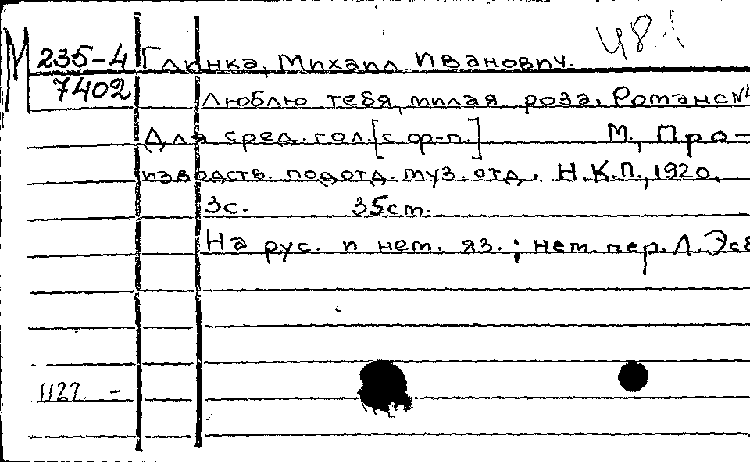 М 235-4 Глинка, Михаил Иванович. 481
7402 Люблю тебя, милая роза. Романс
Для сред. гол. [с ф-п.] М., Про-
изводств. подотд. муз. отд. Н.К.П., 1920.
3с. 35см.
На рус. и нем. яз.; нем. пер. Л. Эсб
1122 -